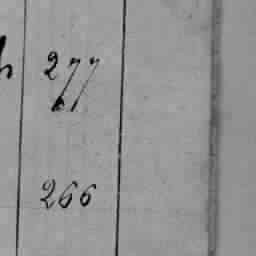 277
266